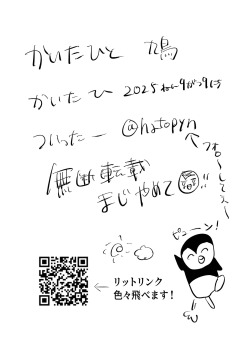 かいたひと 鳩
かいたひ 2025ねん9がつ9にち
ついったー @hatopyn
フォローしてえー
無断転載
まじやめて!!
ピューン!
← リットリンク
色々飛べます!